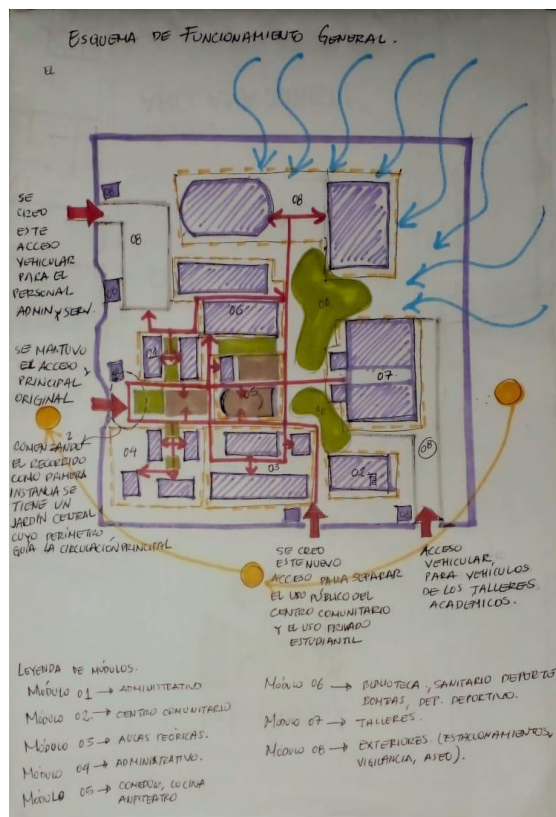 ESQUEMA DE FUNCIONAMIENTO GENERAL.
EL
SE
CREO
ESTE
ACCESO
VEHICULAR
PARA EL
PERSONAL
ADMIN Y SERV.
SE MANTUVO
EL ACCESO
PRINCIPAL
ORIGINAL
COMENZANDO
EL RECORRIDO
COMO PRIMERA
INSTANCIA SE
TIENE UN
JARDÍN CENTRAL
CUYO PERÍMETRO
GUÍA LA CIRCULACIÓN PRINCIPAL
08
08
06
08
01
05
07
04
03
02
08
SE CREO
ESTE NUEVO
ACCESO PARA SEPARAR
EL USO PÚBLICO DEL
CENTRO COMUNITARIO
Y EL USO PRIVADO
ESTUDIANTIL
ACCESO
VEHICULAR,
PARA VEHÍCULOS
DE LOS TALLERES
ACADEMICOS.
LEYENDA DE MÓDULOS.
MÓDULO 01 → ADMINISTRATIVO
MÓDULO 02 → CENTRO COMUNITARIO
MÓDULO 03 → AULAS TEÓRICAS.
MÓDULO 04 → ADMINISTRATIVO.
MÓDULO 05 → COMEDOR, COCINA
ANFITEATRO
MÓDULO 06 → BIBLIOTECA, SANITARIO DEPORTE
BOMBAS, DEP. DEPORTIVO.
MÓDULO 07 → TALLERES.
MÓDULO 08 → EXTERIORES (ESTACIONAMIENTOS,
VIGILANCIA, ASEO).